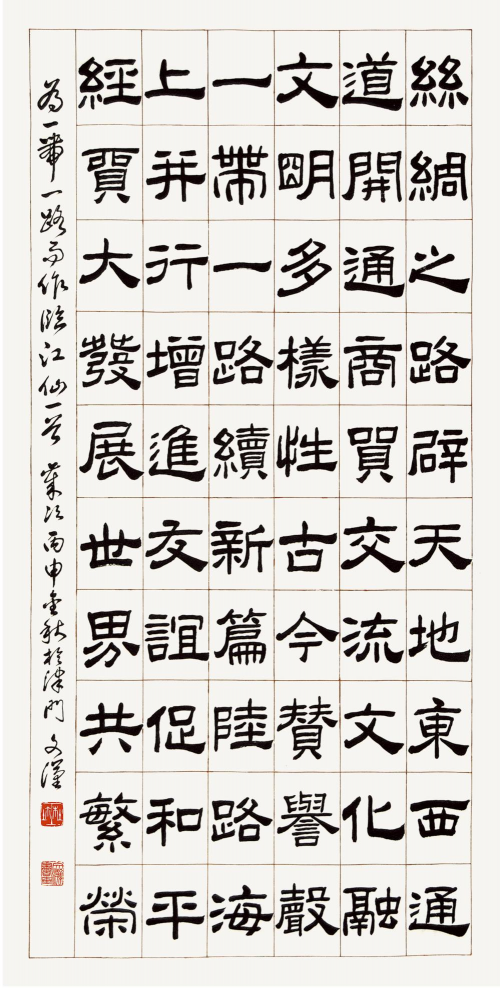 絲綢之路辟天地東西通
道開通商貿交流文化融
文明多樣性古今贊譽聲
一帶一路續新篇陸路海
上并行增進友誼促和平
經貿大發展世界共繁榮
為一帶一路而作臨江仙一首 歲次丙申金秋於津門 文漢